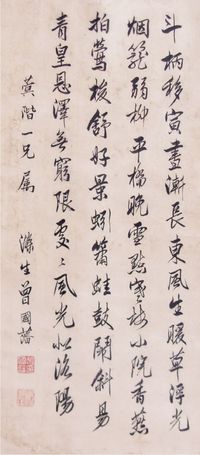 斗柄移寅昼渐长東風生暖草浮光
烟籠弱柳平橋晚雪點寒梅小院香燕
拍鶯梭舒好景蚓簫蛙鼓鬧斜易
青皇恩澤無窮限處〻風光似洛陽
蓂階一兄属 滌生曾國藩